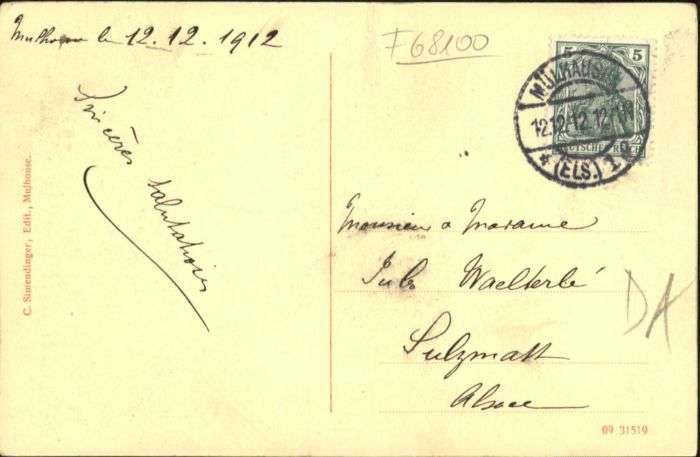 Mulhouse le 12.12.1912
F68100
Sincères
salutations
C. Simrendinger, Edit., Mulhouse.
5 5
MÜLHAUSEN
12.12.12.12
* (ELS.) 1
DEUTSCHES REICH
Monsieur & Madame
Jules Waelterlé
Sulzmatt
Alsace
DA
09 31519